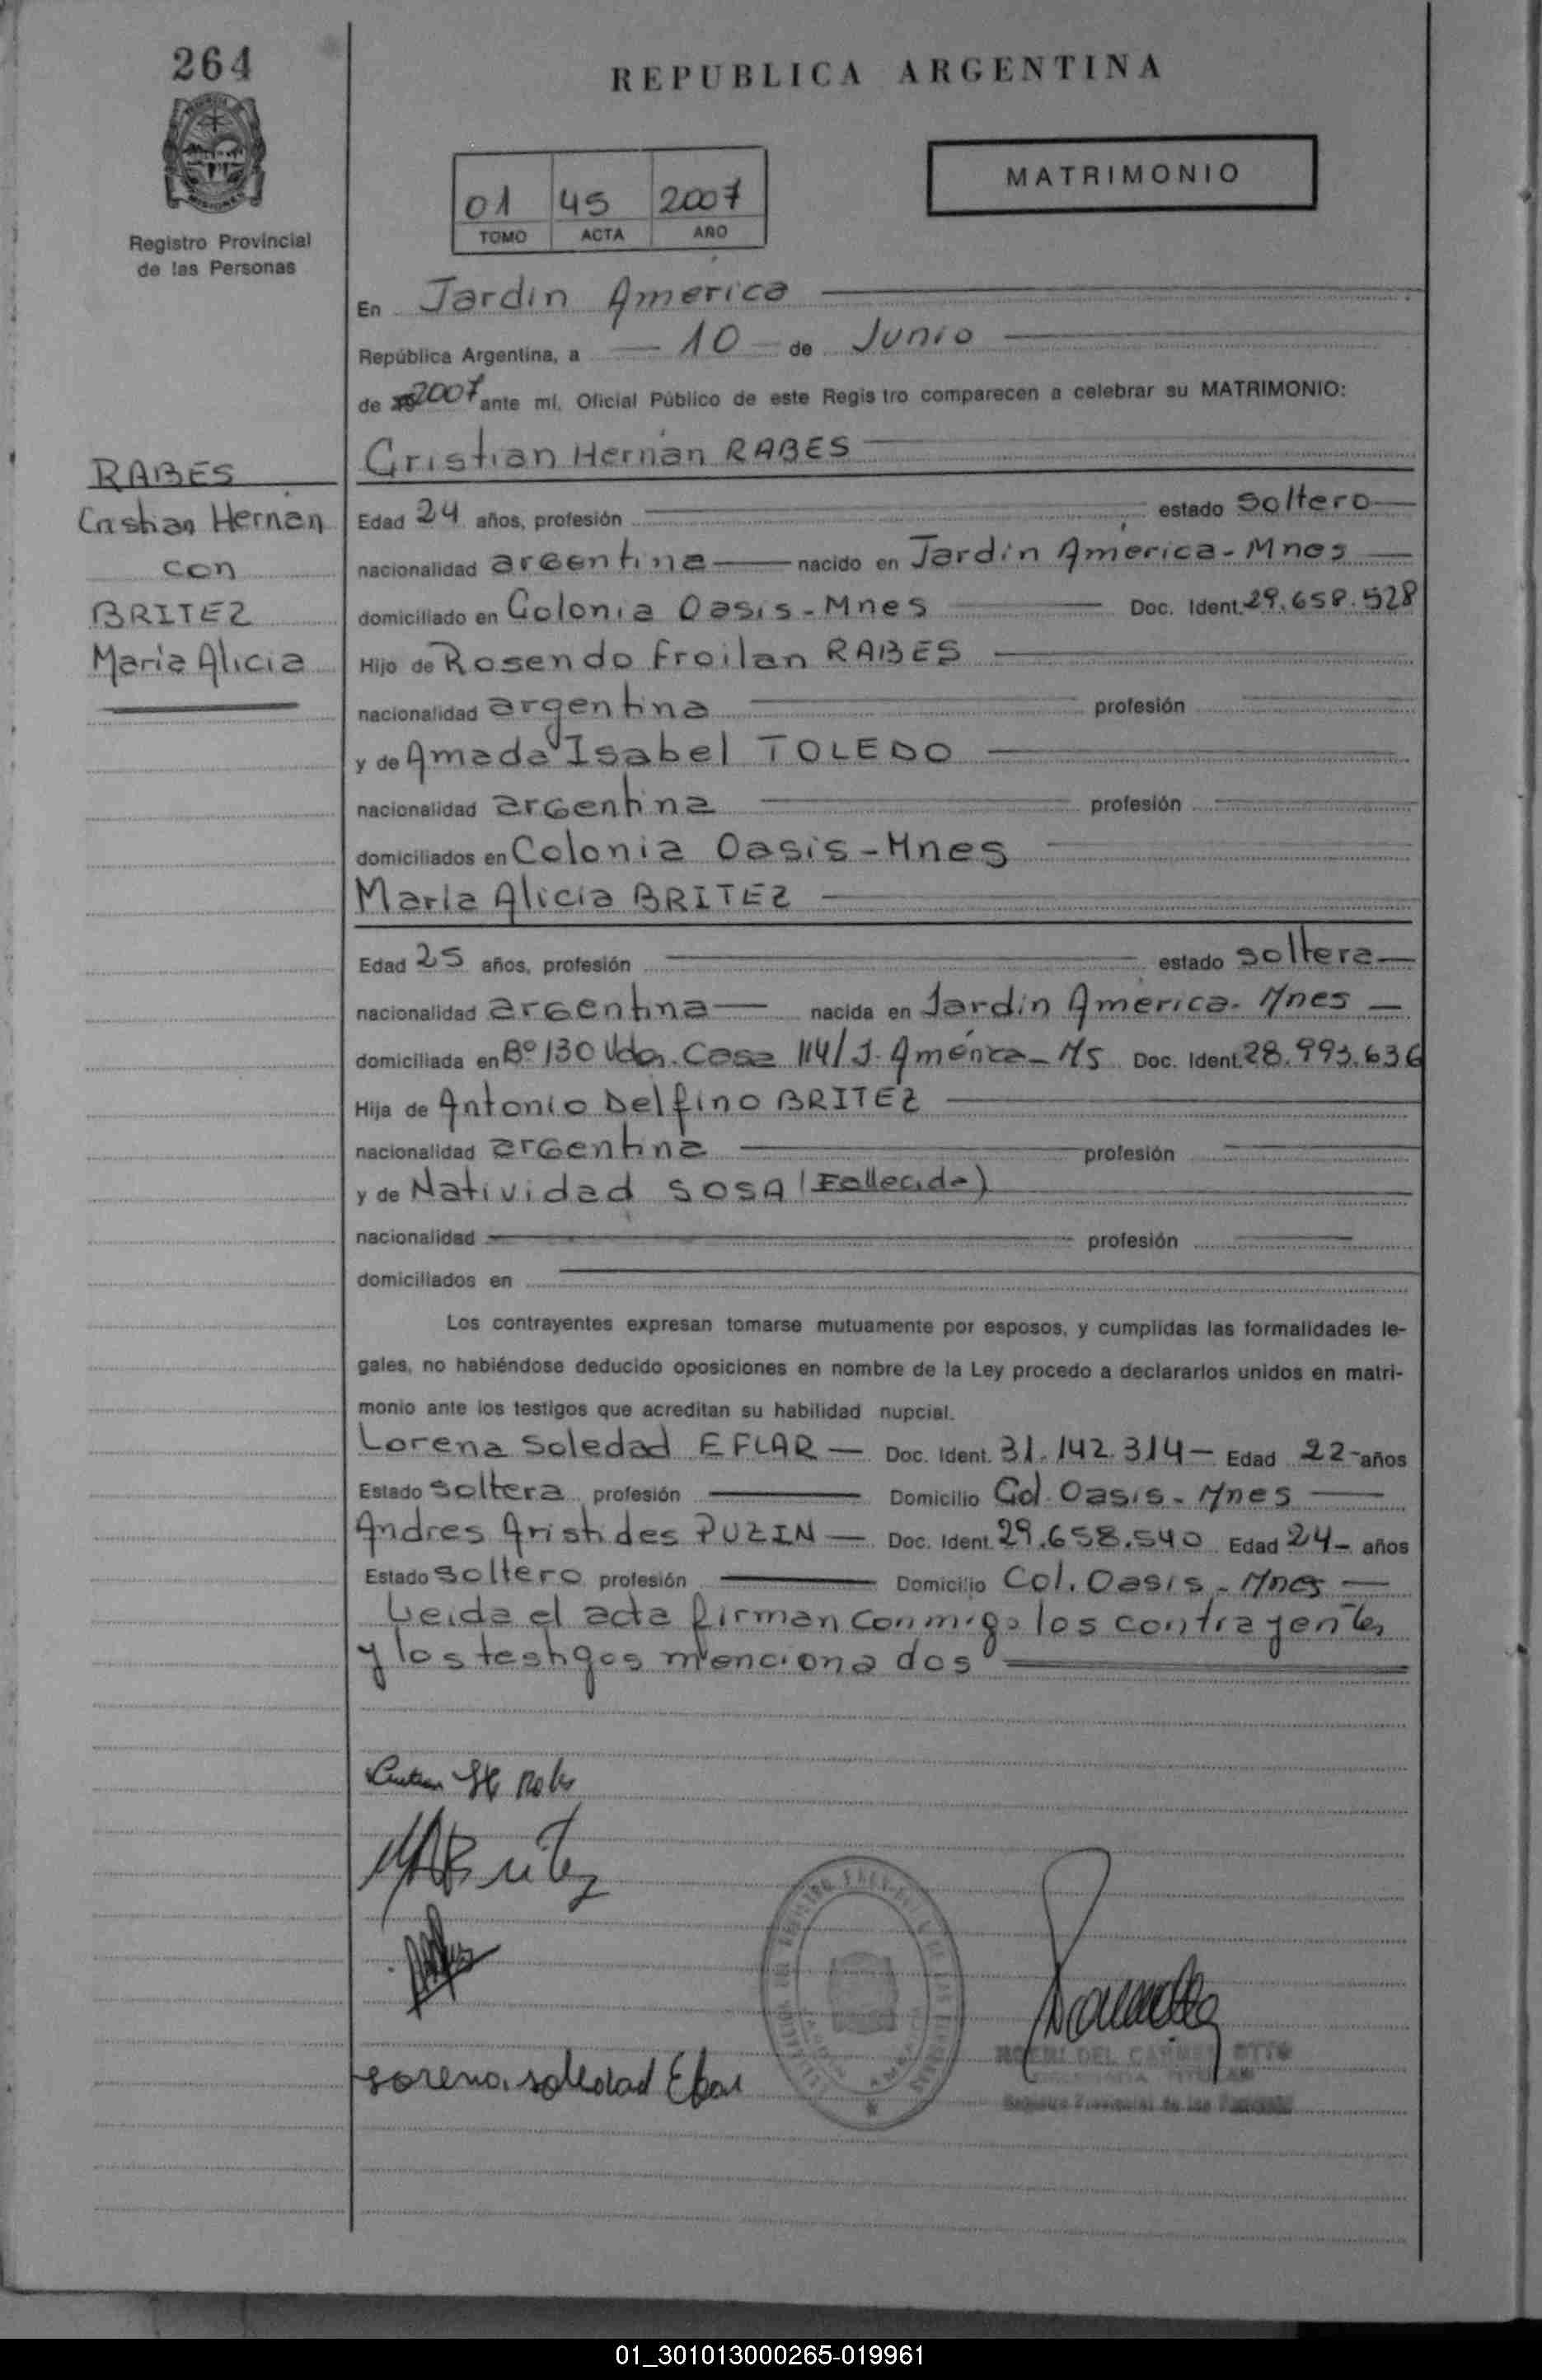 264
REPUBLICA ARGENTINA
MATRIMONIO
01 45 2007
TOMO ACTA AÑO
Registro Provincial
de las Personas
En Jardin America
República Argentina, a 10 de Junio
de 2007 ante mí, Oficial Público de este Registro comparecen a celebrar su MATRIMONIO:
Cristian Hernan RABES
RABES
Cristian Hernan
con
BRITEZ
María Alicia
Edad 24 años, profesión estado soltero
nacionalidad argentina nacido en Jardín América - Mnes
domiciliado en Colonia Oasis - Mnes Doc. Ident. 29.658.528
Hijo de Rosendo Froilan RABES
nacionalidad argentina profesión
y de Amada Isabel TOLEDO
nacionalidad argentina profesión
domiciliados en Colonia Oasis - Mnes
María Alicia BRITEZ
Edad 25 años, profesión estado soltera
nacionalidad argentina nacida en Jardin América - Mnes
domiciliada en Bº 130 Vdas. Casa 114/J. América - MS Doc. Ident. 28.993.636
Hija de Antonio Delfino BRITEZ
nacionalidad argentina profesión
y de Natividad SOSA (Fallecida)
nacionalidad profesión
domiciliados en
Los contrayentes expresan tomarse mutuamente por esposos, y cumplidas las formalidades le-
gales, no habiéndose deducido oposiciones en nombre de la Ley procedo a declararlos unidos en matri-
monio ante los testigos que acreditan su habilidad nupcial.
Lorena Soledad EFLAR Doc. Ident. 31.142.314 - Edad 22 años
Estado soltera profesión Domicilio Col. Oasis - Mnes
Andres Aristides PUZIN Doc. Ident. 29.658.540 Edad 24 - años
Estado soltero profesión Domicilio Col. Oasis - Mnes
Leida el acta firman conmigo los contrayentes
y los testigos mencionados
MABritez
Lorena Soledad
DEL CARMEN OTTO
Registro Provincial de las Personas
01_301013000265-019961